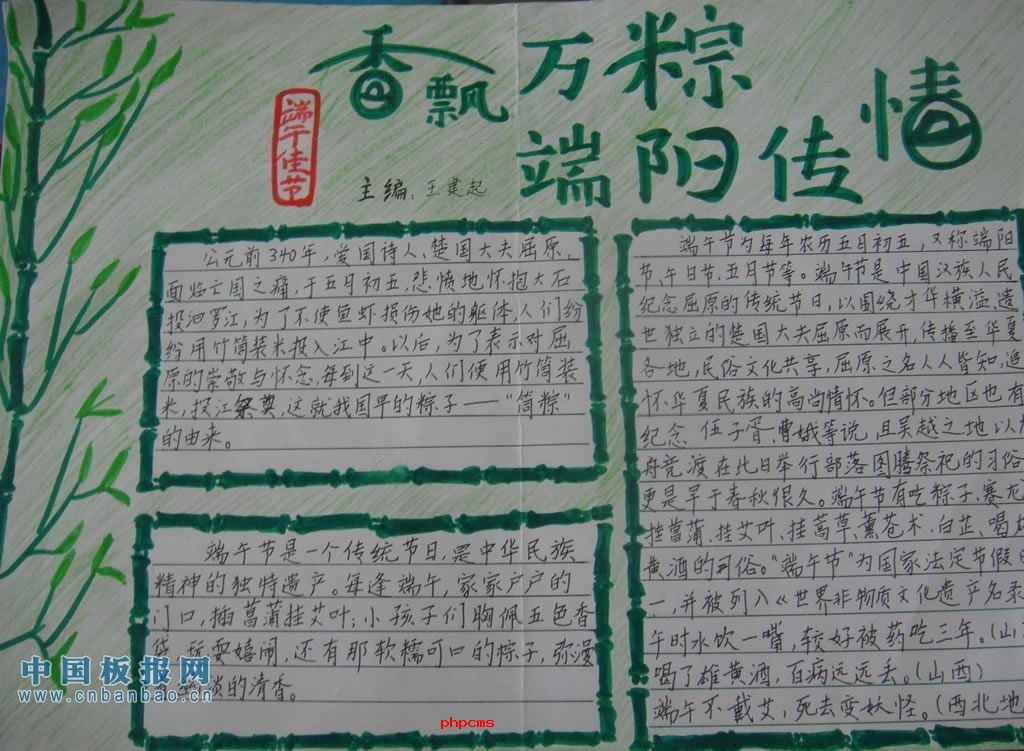 香飘万粽
端阳传情
端午佳节
主编:王建起
公元前340年,爱国诗人、楚国大夫屈原,
面临亡国之痛,于五月初五,悲愤地怀抱大石
投汨罗江,为了不使鱼虾损伤她的躯体,人们纷
纷用竹筒装米投入江中。以后,为了表示对屈
原的崇敬与怀念,每到这一天,人们便用竹筒装
米,投江祭奠,这就我国早的粽子——“筒粽”
的由来。
端午节是一个传统节日,是中华民族
精神的独特遗产。每逢端午,家家户户的
门口,插菖蒲挂艾叶;小孩子们胸佩五色香
袋,玩耍嬉闹,还有那软糯可口的粽子,弥漫
淡的清香。
端午节为每年农历五月初五,又称端阳
节、午日节、五月节等。端午节是中国汉族人民
纪念屈原的传统节日,以围绕才华横溢、遗
世独立的楚国大夫屈原而展开,传播至华夏
各地,民俗文化共享,屈原之名人人皆知,追
怀华夏民族的高尚情怀。但部分地区也有
纪念伍子胥、曹娥等说,且吴越之地以
舟竞渡在此日举行部落图腾祭祀的习俗
更是早于春秋很久。端午节有吃粽子、赛龙
挂菖蒲、挂艾叶、挂蒿草、薰苍术、白芷、喝
黄酒的习俗。“端午节”为国家法定节假
一,并被列入《世界非物质文化遗产名录
午时水饮一嘴,较好被药吃三年。(山
喝了雄黄酒,百病远远丢。(山西)
端午不戴艾,死去变妖怪。(西北地
中国板报网
www.cnbanbao.cn
phpcms